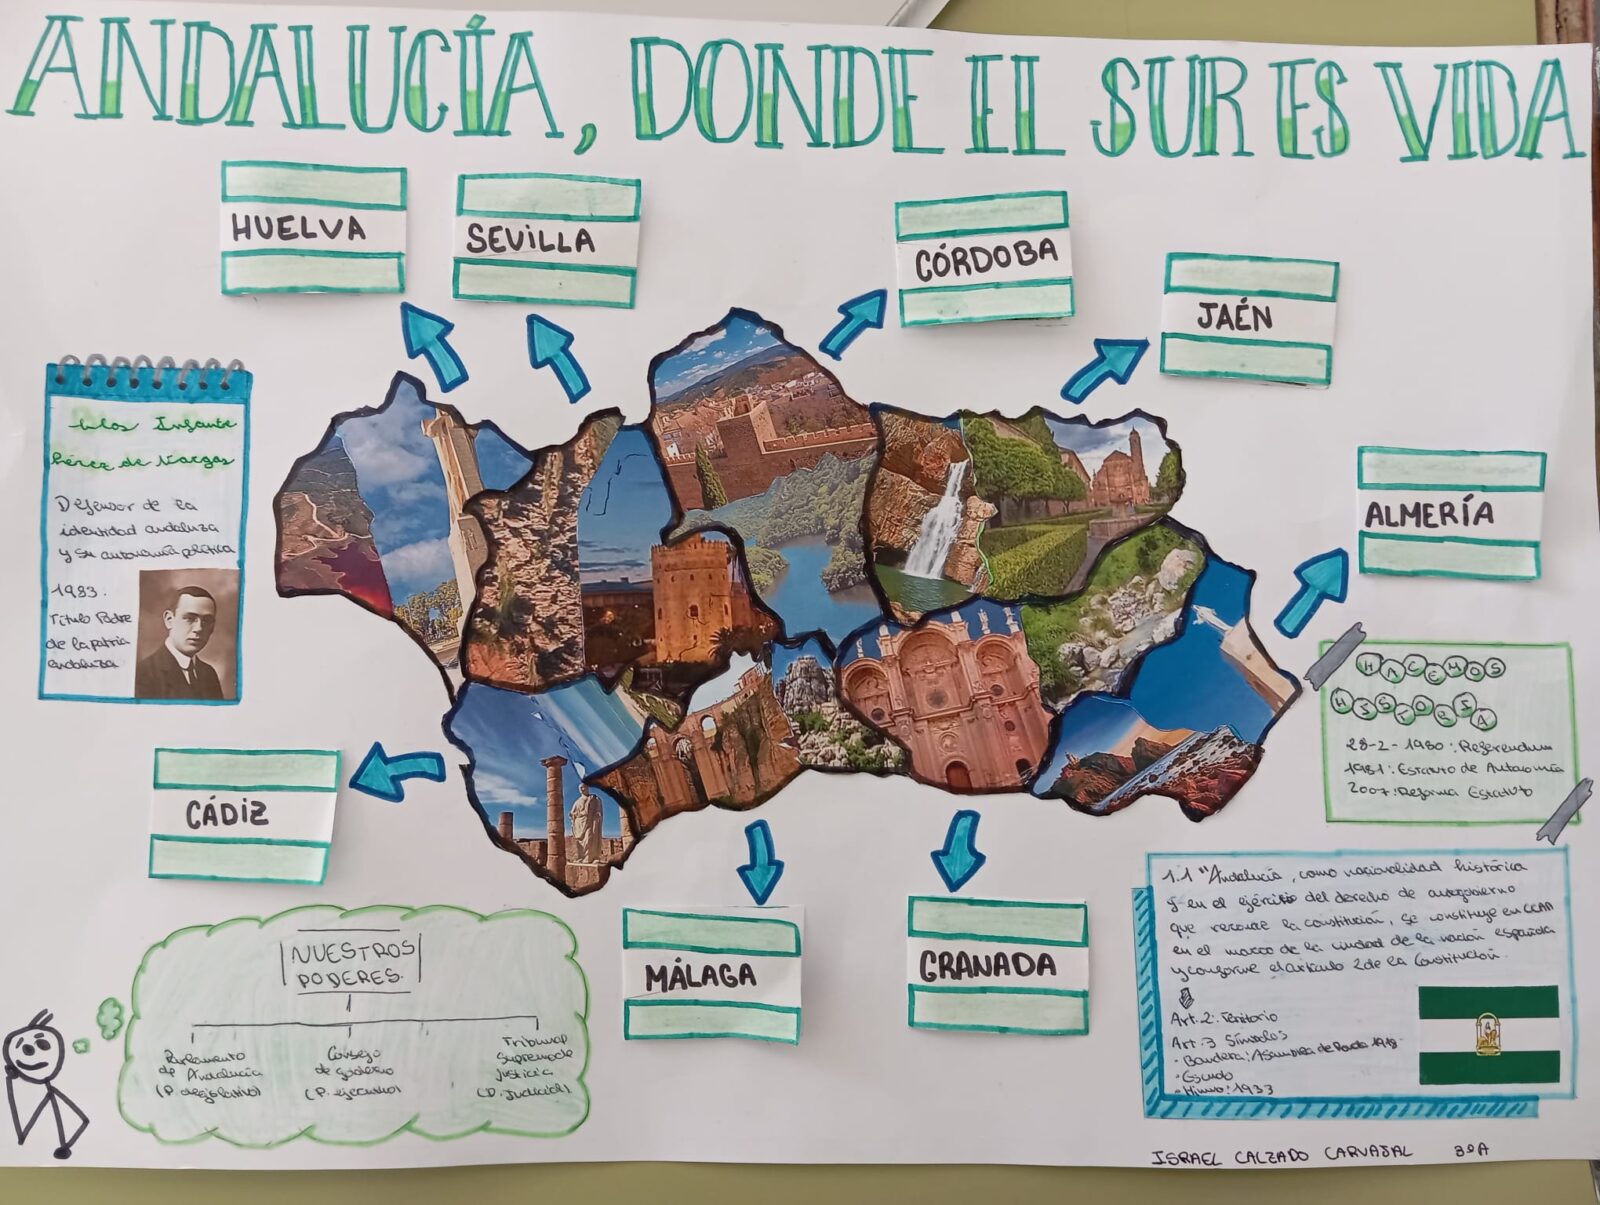 ANDALUCÍA, DONDE EL SUR ES VIDA
HUELVA
SEVILLA
CÓRDOBA
JAÉN
ALMERÍA
CÁDIZ
MÁLAGA
GRANADA
Blas Infante
Pérez de Vargas
Defensor de la
identidad andaluza
y su autonomía política
1983.
Título Padre
de la patria
andaluza
HACEMOS
HISTORIA
28-2-1980: Referendum
1981: Estatuto de Autonomía
2007: Reforma Estatuto
NUESTROS
PODERES.
Parlamento
de Andalucía
(P. legislativo)
Consejo
de gobierno
(P. ejecutivo)
Tribunal
Supremo de
justicia
(P. judicial)
1.1 "Andalucía, como nacionalidad histórica
y en el ejercicio del derecho de autogobierno
que reconoce la constitución, se constituye en CCAA
en el marco de la unidad de la nación española
y conforme el artículo 2 de la Constitución.
Art. 2: Territorio
Art. 3 Símbolos
- Bandera: Asamblea de Ronda 1918.
- Escudo
- Himno: 1933
ISRAEL CALZADO CARVAJAL 3ºA